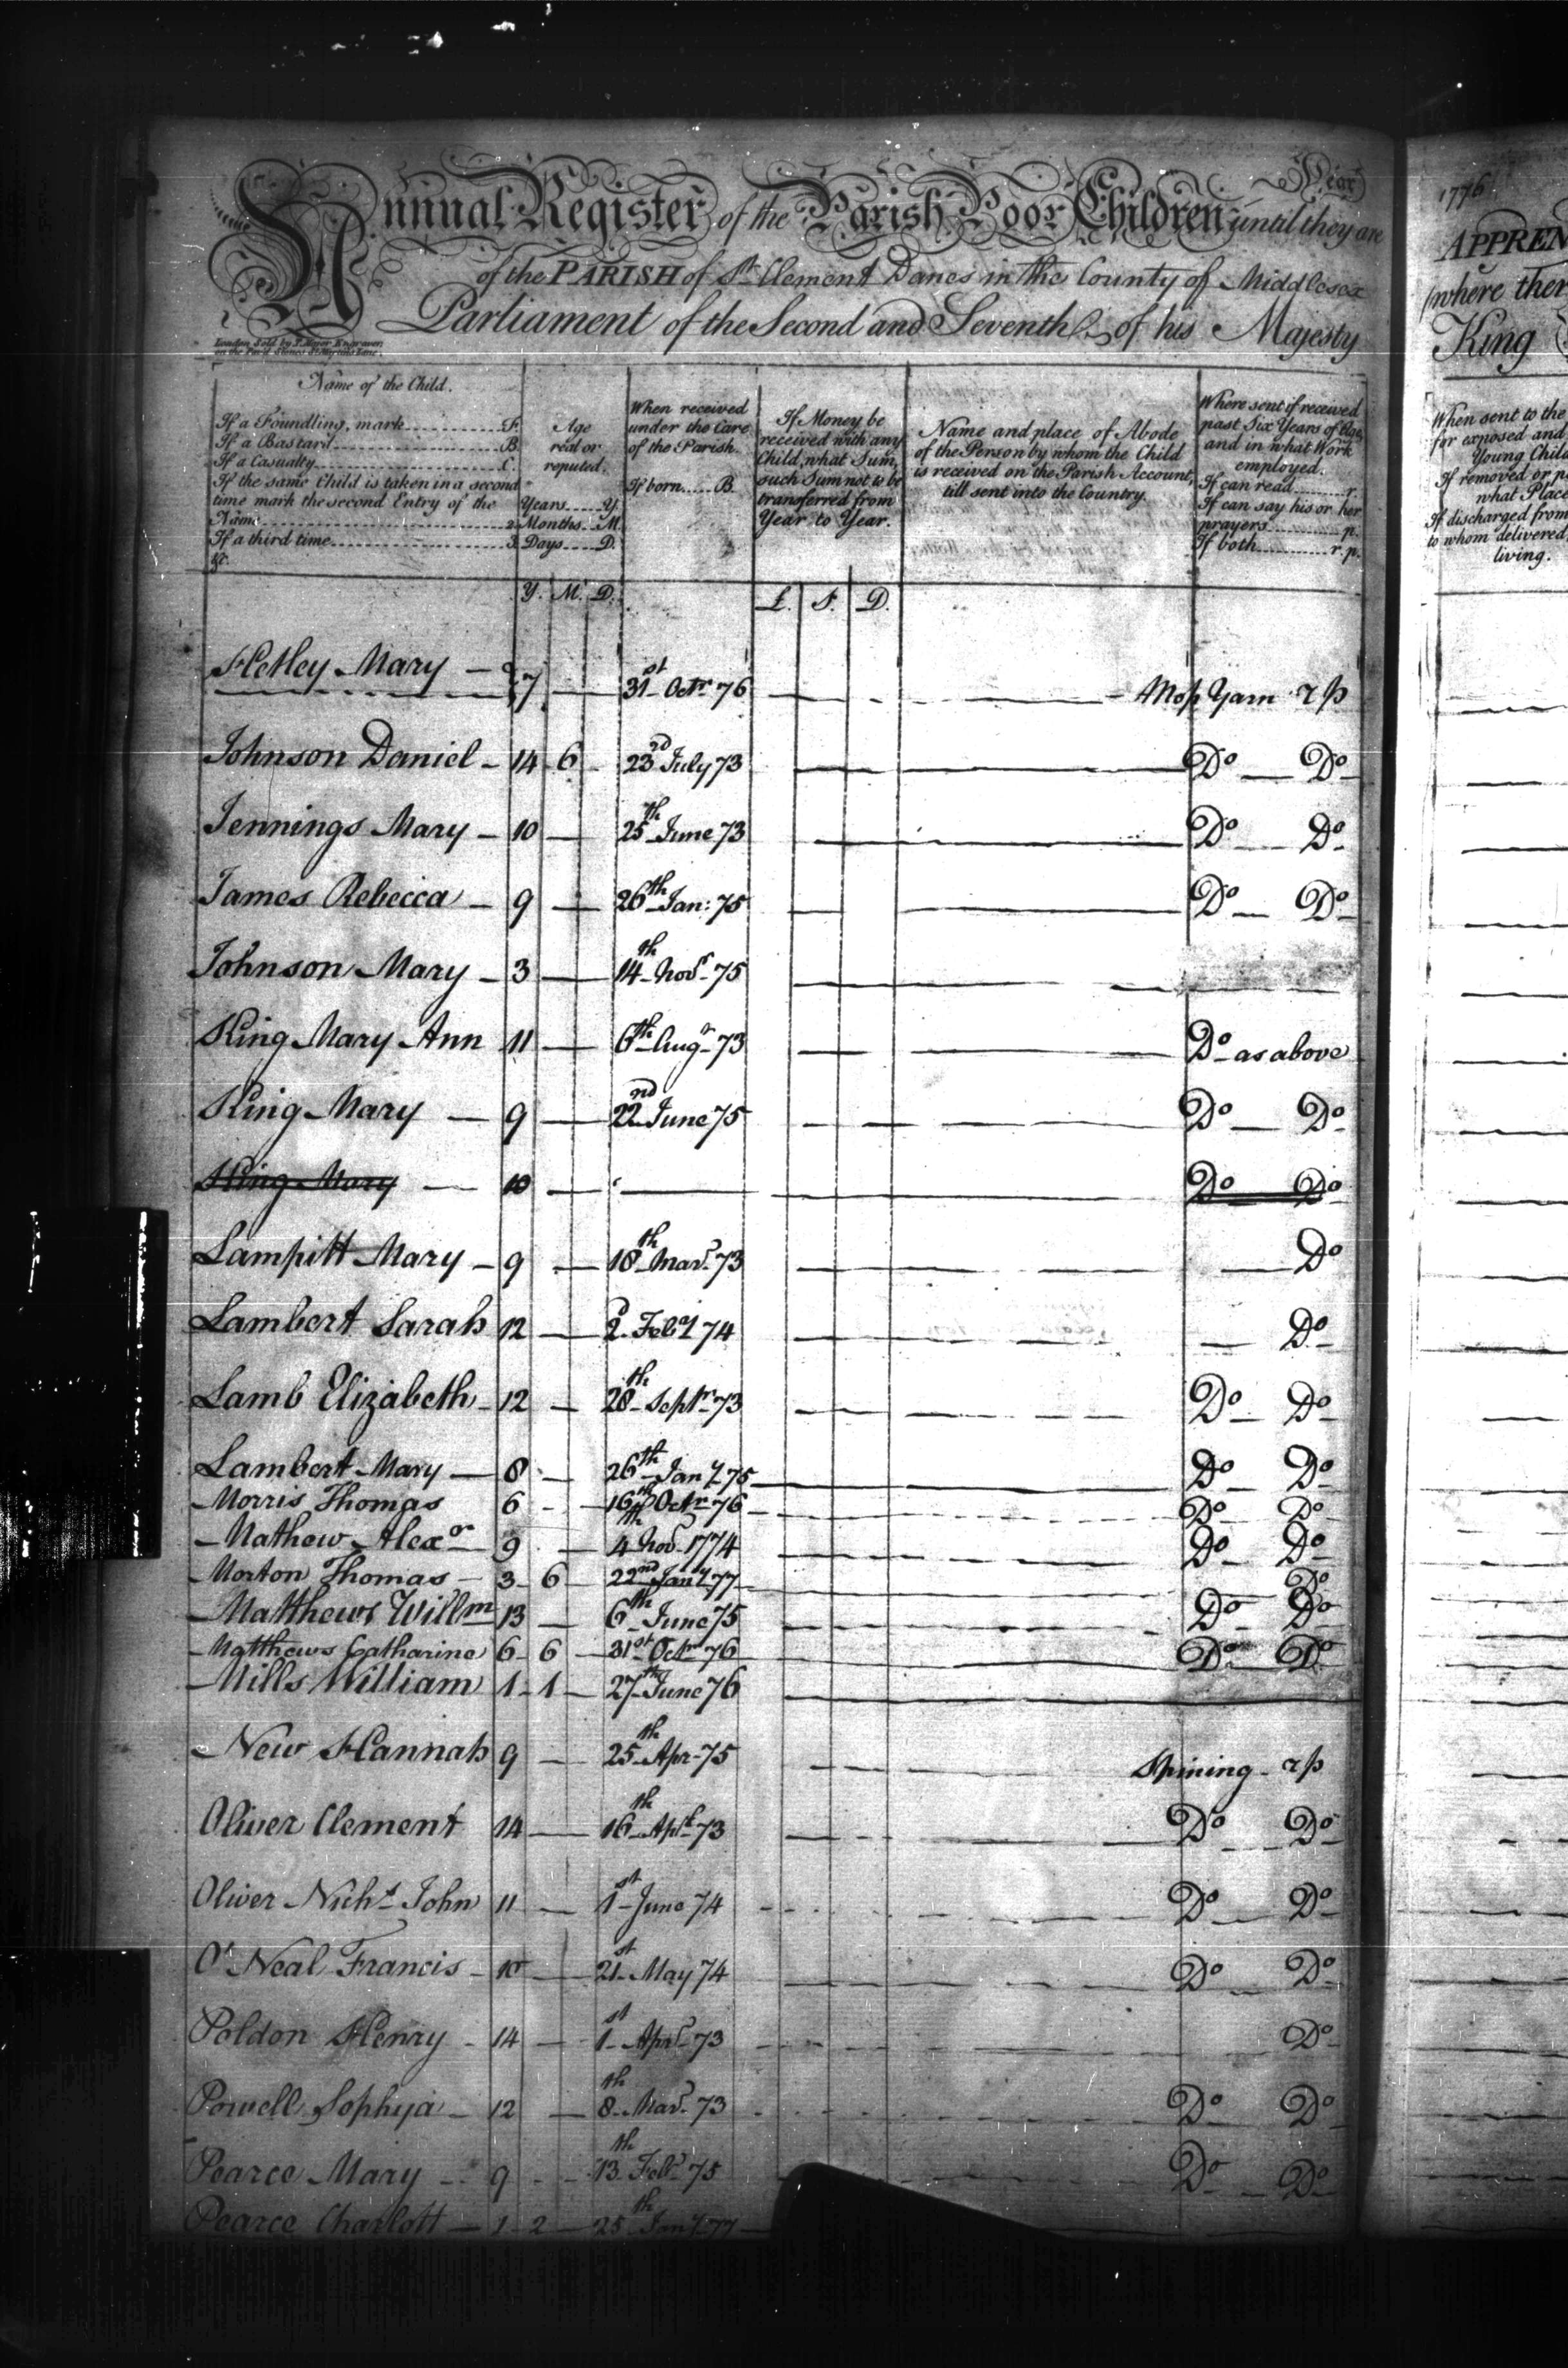 Year
Annual Register of the Parish Poor Children until they are
of the PARISH of St. Clement Danes in the County of Middlesex
Parliament of the Second and Seventh of his Majesty
London Sold by
Name of the Child.
If a Foundling, mark F.
If a Bastard B.
If a Casualty C.
If the same Child is taken in a second
time mark the second Entry of the
Name 2.
If a third time 3.
&c.
Age
real or
reputed.
Years Y.
Months M.
Days D.
When received
under the Care
of the Parish.
If born B.
If Money be
received with any
Child, what Sum,
such Sum not to be
transferred from
Year to Year.
Name and place of Abode
of the Person by whom the Child
is received on the Parish Account,
till sent into the Country.
Where sent if received
past Six Years of Age,
and in what Work
employed.
If can read r.
If can say his or her
prayers p.
If both r. p.
Y. M. D. £. S. D.
Hetley Mary 7 31st Octr 76 Mop Yarn r p
Johnson Daniel 14 6 23rd July 73 Do Do
Jennings Mary 10 25th June 73 Do Do
James Rebecca 9 26th Jan: 75 Do Do
Johnson Mary 3 14th Novr 75
King Mary Ann 11 6th Augt 73 Do as above
King Mary 9 22nd June 75 Do Do
King Mary 10 Do Do
Lampitt Mary 9 18th Mar. 73 Do
Lambert Sarah 12 2 Feby 74 Do
Lamb Elizabeth 12 28th Septr 73 Do Do
Lambert Mary 8 26th Jany 75 Do Do
Morris Thomas 6 16th Octr 76 Do Do
Mathew Alexr 9 4th Novr 1774 Do Do
Morton Thomas 3 6 22nd Jany 77 Do
Matthews Willm 13 6th June 75 Do Do
Matthews Catharine 6 6 31st Octr 76 Do Do
Mills William 1 1 27th June 76
New Hannah 9 25th Apr 75 Spining r p
Oliver Clement 14 16th Apl 73 Do Do
Oliver Nichs John 11 1st June 74 Do Do
O'Neal Francis 10 21st May 74 Do Do
Poldon Henry 14 1st Apr 73 Do
Powell Sophya 12 8th Mar. 73 Do Do
Pearce Mary 9 13th Feb 75 Do Do
Pearce Charlott 1 2 25th Jany 77
1776
APPREN
(where ther
King
When sent to the
for exposed and
Young Child
If removed or p
what Place
If discharged from
to whom delivered,
living.